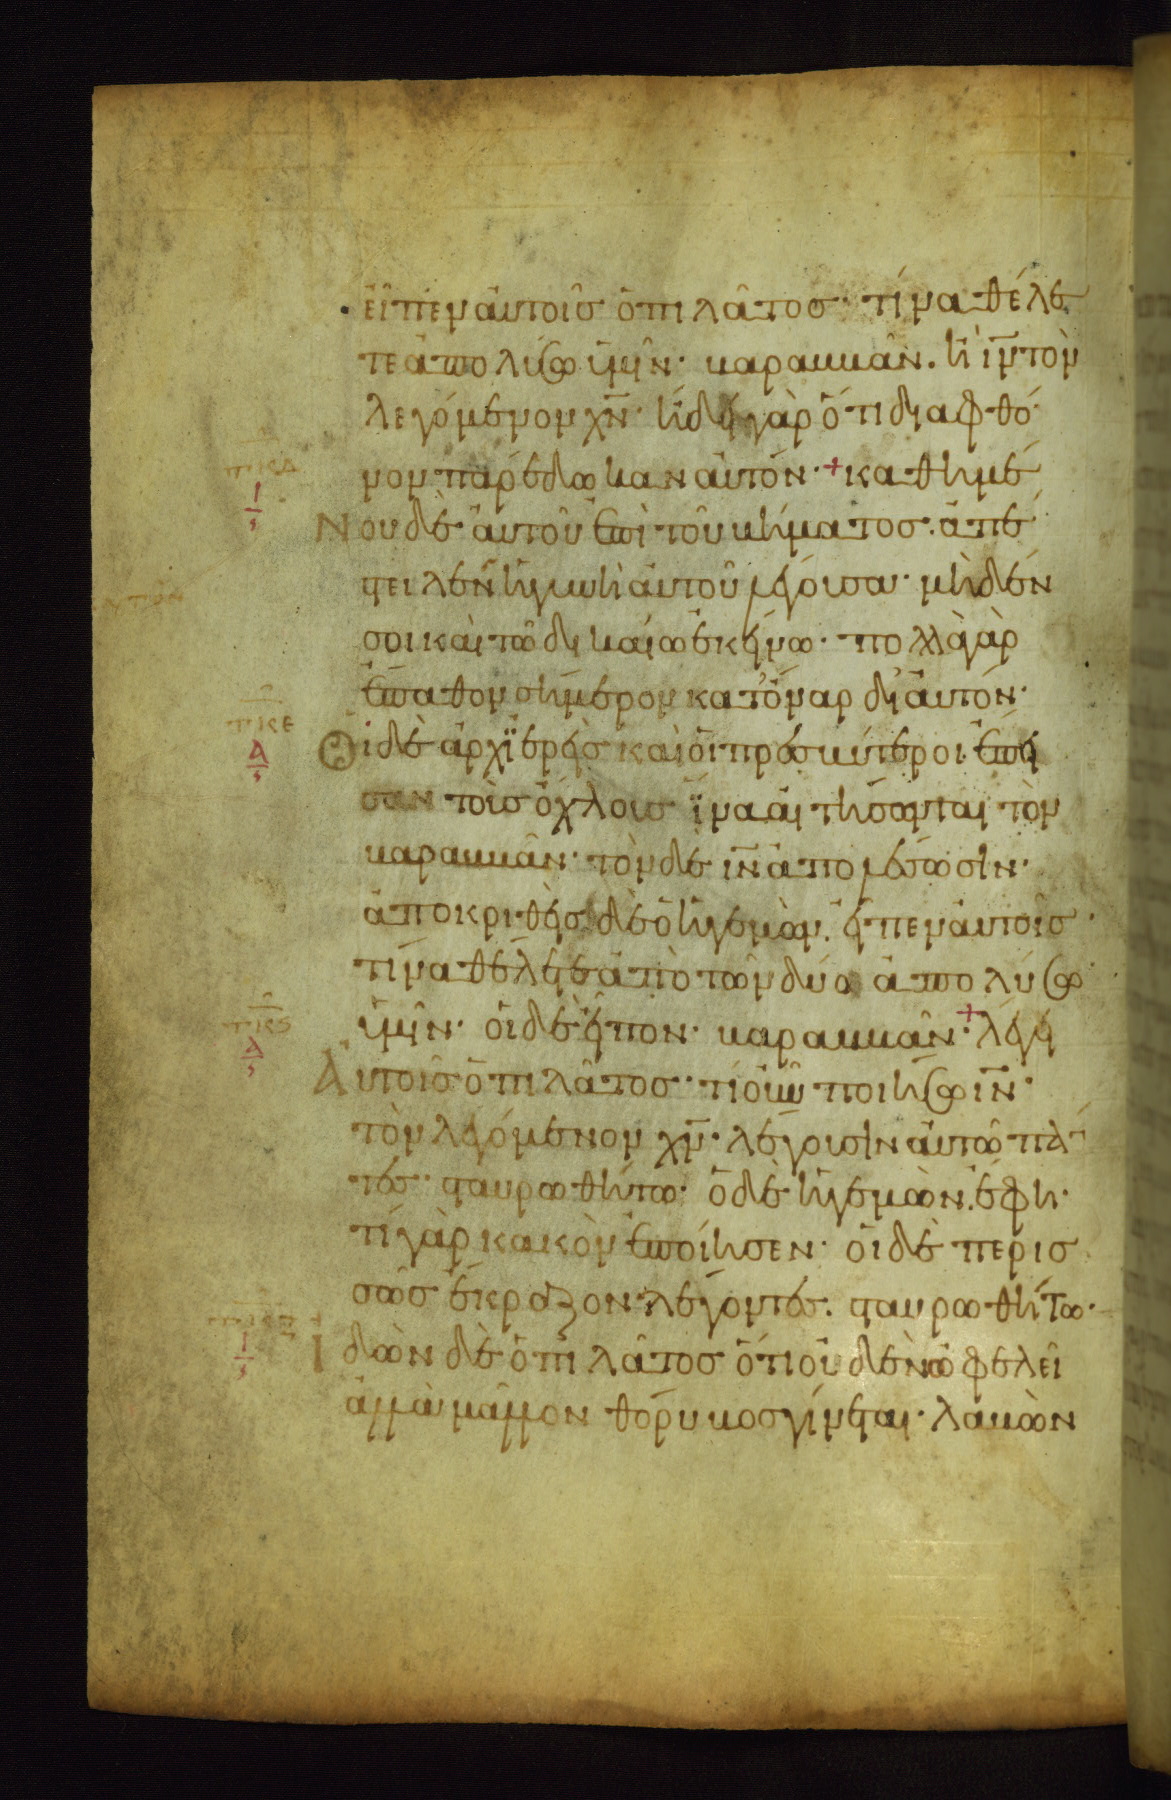 εἶπεν αὐτοῖς ὁ πιλᾶτος· τίνα θέλε
τε ἀπολύσω ὑμῖν· βαραββᾶν. ἢ ἰν̅ τὸν
λεγόμενον χν̅· ἤδει γὰρ ὅτι διαφθό
νον παρέδωκαν αὐτόν· + καθημέ
Νου δὲ αὐτοῦ ἐπὶ τοῦ βήματος. ἀπέ
στειλεν ἡ γυνὴ αὐτοῦ λέγουσα· μηδέν
σοι καὶ τῶ δικαίω ἐκείνω· πολλὰ γὰρ
ἔπαθον σήμερον κατ' ὄναρ δι' αὐτόν·
Οἱ δὲ ἀρχϊερεῖς καὶ οἱ πρεσβύτεροι ἔπει
σαν τοὺς ὄχλους ἵνα αἰτήσωνται τὸν
βαραββᾶν· τὸν δὲ ιν̅ ἀπολέσωσιν·
ἀποκριθεὶς δὲ ὁ ἡγεμὼν. εἶπεν αὐτοῖς
τίνα θέλετε ἀπὸ τῶν δύο ἀπολύσω
ὑμῖν· οἱ δὲ εἶπον· βαραββᾶν· + λέγει
Αὐτοῖς ὁ πιλᾶτος· τί οὖν ποιήσω ιν̅·
τὸν λεγόμενον χν̅· λέγουσιν αὐτῶ πάν
τες· σταυρωθήτω· ὁ δὲ ἡγεμὼν. ἔφη·
τί γὰρ κακὸν ἐποίησεν· οἱ δὲ περισ
σῶς ἔκραζον λέγοντες. σταυρωθήτω·
Ἰδὼν δὲ ὁ πιλᾶτος ὅτι οὐδὲν ὠφελεῖ
ἀλλὰ μᾶλλον θόρυβος γίνεται· λαβὼν
τκδ
ι
ς
τκε
δ
ς
τκς
δ
ς
ι
ς